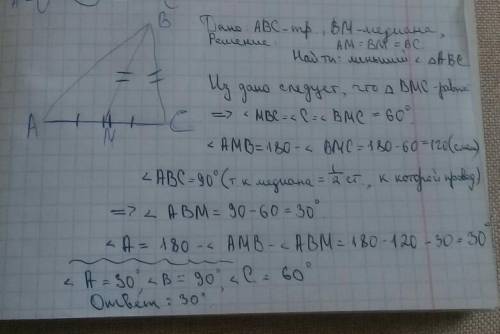 B
A
N
C
Дано ABC-тр., BM-медиана,
Решение AM=BM=BC.
Найти: меньший < ΔABC
Из дано следует, что Δ BMC-равно
=> <MBC=<C=<BMC=60°
<AMB=180-<BMC=180-60=120(смеж)
<ABC=90°(т к медиана=1/2 ст., к которой провед)
=> < ABM=90-60=30°
<A=180-<AMB-<ABM=180-120-30=30°
<A=30°, <B=90°, <C=60°
Ответ: 30°.